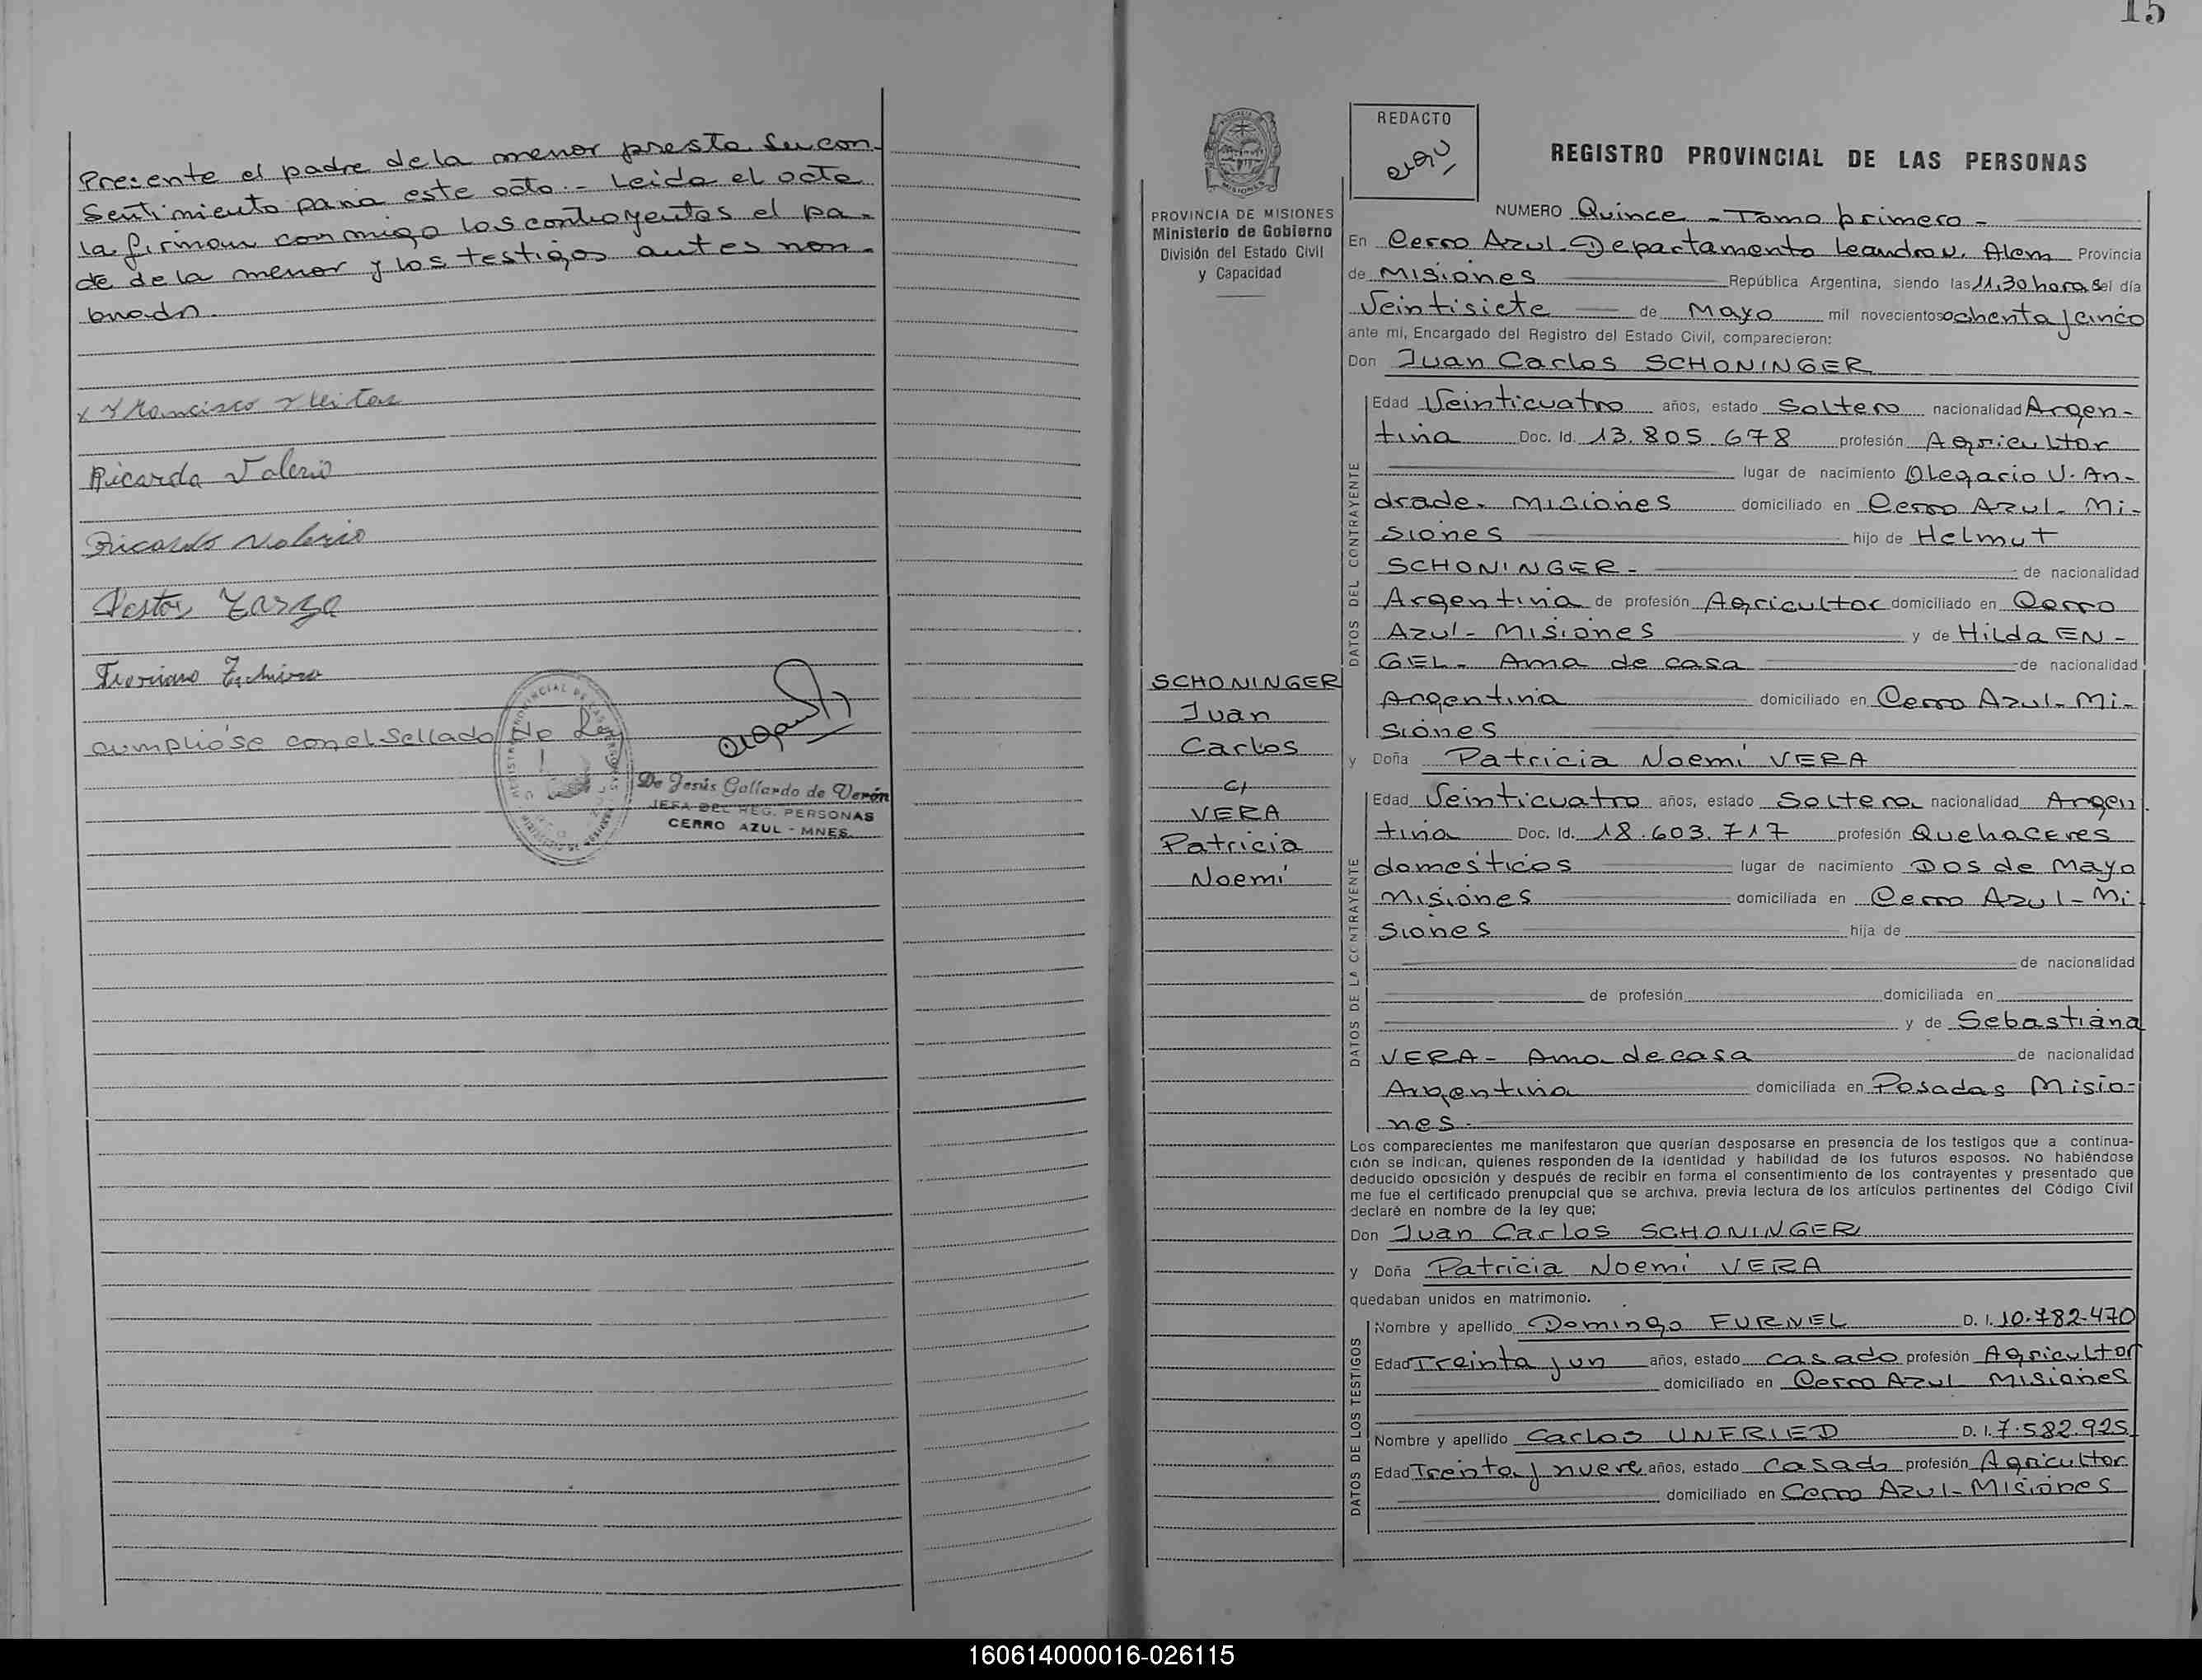 Presente el padre de la menor presta su con-
sentimiento para este acto.- Leida el acta
la firman conmigo los contrayentes el pa-
dre de la menor y los testigos antes nom-
brado.
x Francisco Fleitas
Ricarda Valerio
Ricardo Valerio
Nestor
cumpliose con el sellado de Ley
De Jesús Gallardo de Verón
JEFA DEL REG. PERSONAS
CERRO AZUL - MNES.
15
PROVINCIA DE MISIONES
Ministerio de Gobierno
División del Estado Civil
y Capacidad
SCHONINGER
Juan
Carlos
c/
VERA
Patricia
Noemí
REDACTO
REGISTRO PROVINCIAL DE LAS PERSONAS
NUMERO Quince - Tomo primero -
En Cerro Azul - Departamento Leandro N. Alem Provincia
de Misiones República Argentina, siendo las 11,30 horas del día
Veintisiete de Mayo mil novecientos ochenta y cinco
ante mi, Encargado del Registro del Estado Civil, comparecieron:
Don Juan Carlos SCHONINGER
DATOS DEL CONTRAYENTE
Edad Veinticuatro años, estado Soltero nacionalidad Argen-
tina Doc. Id. 13.805.678 profesión Agricultor
lugar de nacimiento Olegario V. An-
drade - Misiones domiciliado en Cerro Azul - Mi-
siones hijo de Helmut
SCHONINGER - de nacionalidad
Argentina de profesión Agricultor domiciliado en Cerro
Azul - Misiones y de Hilda EN-
GEL - Ama de casa de nacionalidad
Argentina domiciliado en Cerro Azul - Mi-
siones
y Doña Patricia Noemí VERA
DATOS DE LA CONTRAYENTE
Edad Veinticuatro años, estado Soltera nacionalidad Argen
tina Doc. Id. 18.603.717 profesión Quehaceres
domesticos lugar de nacimiento Dos de Mayo
Misiones domiciliada en Cerro Azul - Mi
siones hija de
de nacionalidad
de profesión domiciliada en
y de Sebastiana
VERA - Ama de casa de nacionalidad
Argentina domiciliada en Posadas Misio-
nes.
Los comparecientes me manifestaron que querían desposarse en presencia de los testigos que a continua-
ción se indican, quienes responden de la identidad y habilidad de los futuros esposos. No habiéndose
deducido oposición y después de recibir en forma el consentimiento de los contrayentes y presentado que
me fue el certificado prenupcial que se archiva, previa lectura de los artículos pertinentes del Código Civil
declaré en nombre de la ley que:
Don Juan Carlos SCHONINGER
y Doña Patricia Noemí VERA
quedaban unidos en matrimonio.
DATOS DE LOS TESTIGOS
Nombre y apellido Domingo FURNEL D. I. 10.782.470
Edad Treinta y un años, estado casado profesión Agricultor
domiciliado en Cerro Azul Misiones
Nombre y apellido Carlos UNFRIED D. I. 7.582.925
Edad Treinta y nueve años, estado casado profesión Agricultor
domiciliado en Cerro Azul - Misiones
160614000016-026115